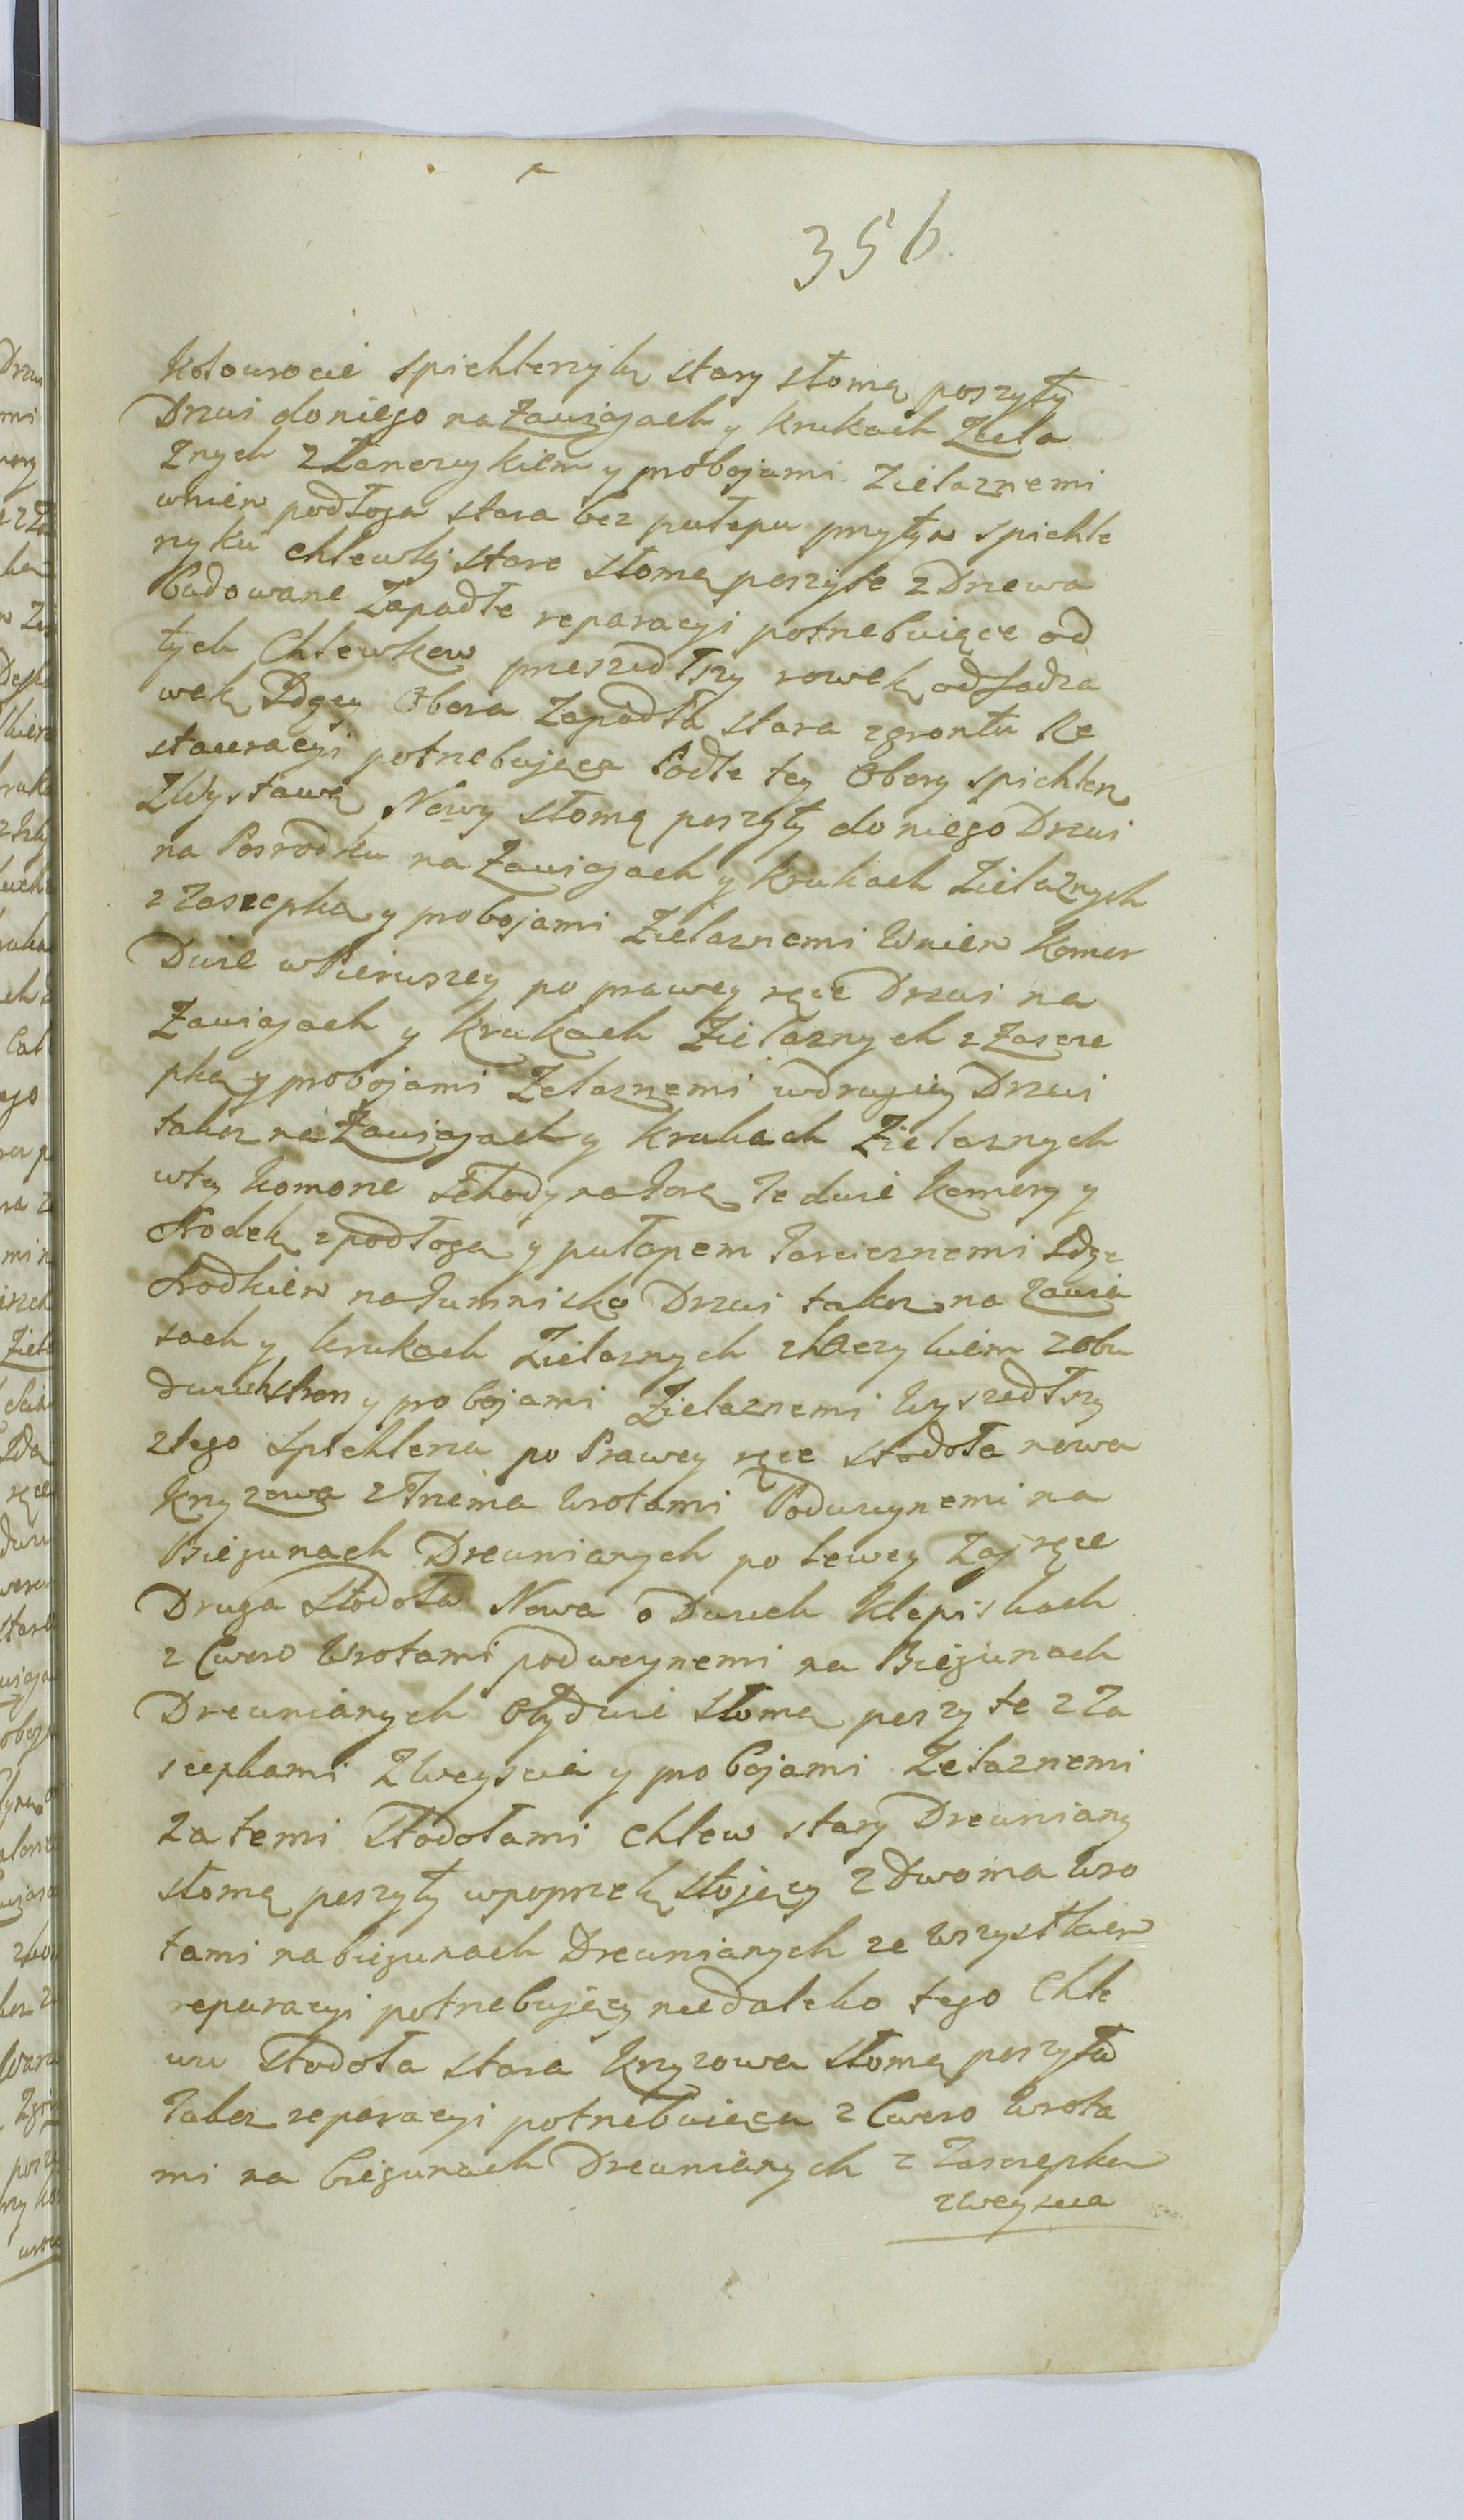 356.
Kołowrocie Spichlerzyk stary słomą poszyty
Drzwi do niego na Zawiasach y krukach Żela
znych z Łancuzykiem y probojami Zielaznemi
wniem podłoga stara bez pułapu przytym spichle
rzyku chlewki stare słomą poszyte z Drzewa
Budowane Zapadłe reparacyi potrzebuiące od
tych Chlewkow przeszedłszy rowek od sadza
wek Idący Obora Zapadła stara zgrontu Re
stauracyi potrzebująca Podle tey Obory Spichlerz
z Wystawą Nowy słomą poszyty do niego Drzwi
na Posrodku na Zawiasach y krukach Zielaznych
z Zasczepka y probojami Zielaznemi Wniem Komor
Dwie w Pierwszey po prawey ręce Drzwi na
Zawiasach y krukach Zielaznych z Zascze
pka y probojami Zelaznemi w drugiey Drzwi
takez na Zawiasach y krukach Zielaznych
w tey komorze Schody na Gorę Te dwie Komory y
Srodek z podłoga y pułapem Tarcicznemi Idąc
Srodkiem na Gumnisko Drzwi takez na Zawia
sach y krukach Zielaznych z haczykiem z obu
dwuch stron y probojami Zielaznemi Wyszedłszy
z tego Spichlerza po Prawey ręce stodoła nowa
krzyzowa z Trzema Wrotami Podwoynemi na
Biegunach Drewnianych po lewey Zaś ręce
Druga Stodoła Nowa o Dwuch Klepiskach
z Cworo Wrotami podwoynemi na Biegunach
Drewnianych Oby dwie słomą poszyte z Za
sczepkami z Weyscia y probojami Zelaznemi
za temi Stodołami chlew stary Drewniany
słomą poszyty w poprzek stojący z Dwoma Wro
tami na biegunach Drewnianych ze wszystkiem
reparacyi potrzebujący niedaleko tego Chle
wu Stodoła stara krzyzowa słomą poszyta
Takez reparacyi potrzebuiąca z Cworo Wrota
mi na biegunach Drewnianych z Zasczepka
z weyscia